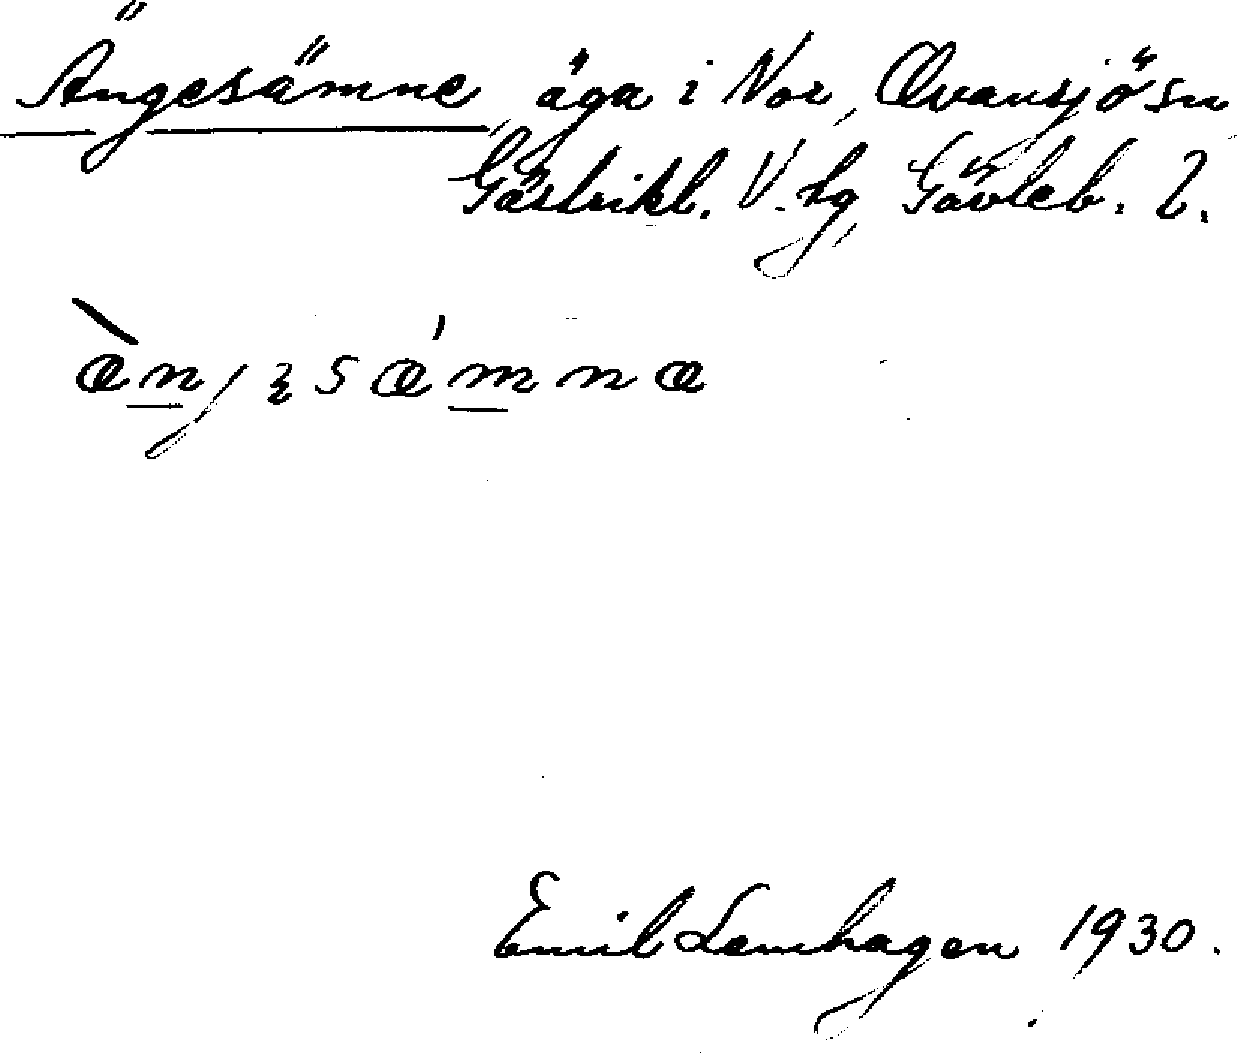 Ängesämne, äga i Nor, Ovansjö sn
Gästrikl. V. tg, Gävleb. l.
æ̀njꝫsǽmnæ
Emil Lemhagen 1930.